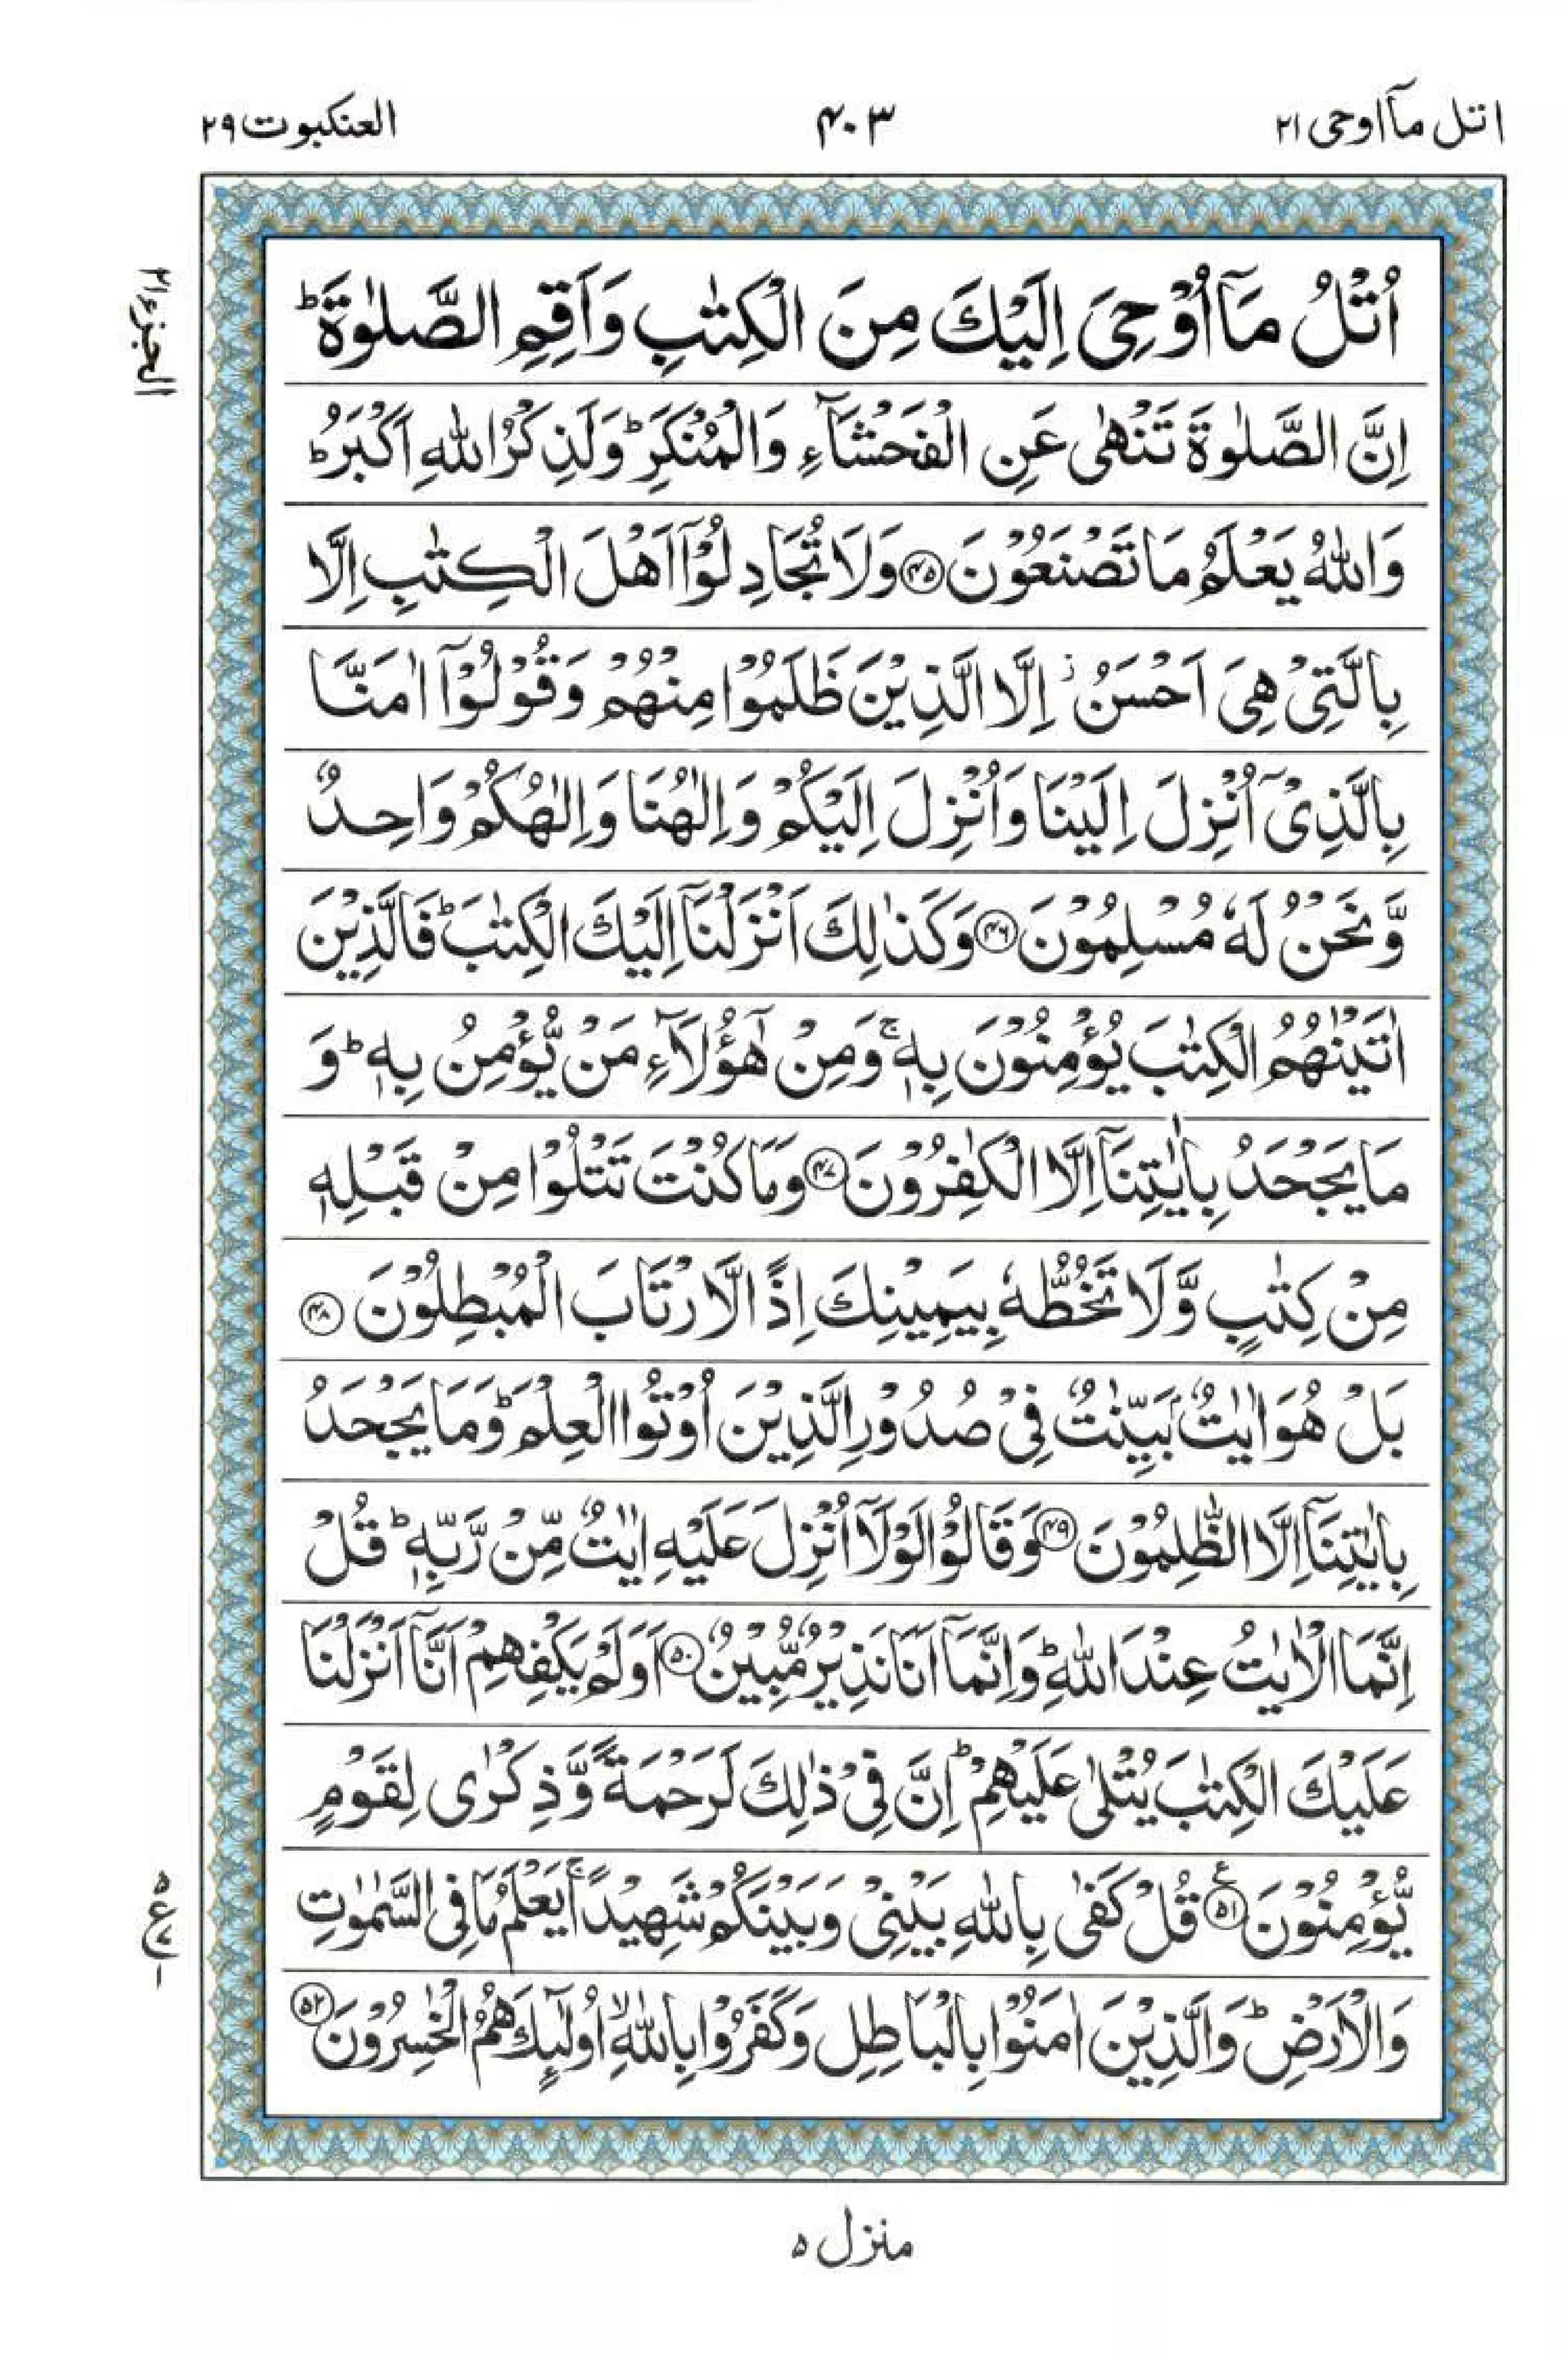 اتل مآاوحی ۲۱
۴۰۳
العنكبوت ۲۹
الجزء ۲۱
اُتْلُ مَاۤ اُوْحِیَ اِلَیْكَ مِنَ الْكِتٰبِ وَاَقِمِ الصَّلٰوةَ ؕ
اِنَّ الصَّلٰوةَ تَنْهٰی عَنِ الْفَحْشَآءِ وَالْمُنْكَرِ ؕ وَلَذِكْرُ اللّٰهِ اَكْبَرُ ؕ
وَاللّٰهُ یَعْلَمُ مَا تَصْنَعُوْنَ ﴿۴۵﴾ وَلَا تُجَادِلُوْۤا اَهْلَ الْكِتٰبِ اِلَّا
بِالَّتِیْ هِیَ اَحْسَنُ ۖ اِلَّا الَّذِیْنَ ظَلَمُوْا مِنْهُمْ وَقُوْلُوْۤا اٰمَنَّا
بِالَّذِیْۤ اُنْزِلَ اِلَیْنَا وَاُنْزِلَ اِلَیْكُمْ وَاِلٰهُنَا وَاِلٰهُكُمْ وَاحِدٌ
وَّنَحْنُ لَهٗ مُسْلِمُوْنَ ﴿۴۶﴾ وَكَذٰلِكَ اَنْزَلْنَاۤ اِلَیْكَ الْكِتٰبَ ؕ فَالَّذِیْنَ
اٰتَیْنٰهُمُ الْكِتٰبَ یُؤْمِنُوْنَ بِهٖ ۚ وَمِنْ هٰۤؤُلَآءِ مَنْ یُّؤْمِنُ بِهٖ ؕ وَ
مَا یَجْحَدُ بِاٰیٰتِنَاۤ اِلَّا الْكٰفِرُوْنَ ﴿۴۷﴾ وَمَا كُنْتَ تَتْلُوْا مِنْ قَبْلِهٖ
مِنْ كِتٰبٍ وَّلَا تَخُطُّهٗ بِیَمِیْنِكَ اِذًا لَّارْتَابَ الْمُبْطِلُوْنَ ﴿۴۸﴾
بَلْ هُوَ اٰیٰتٌۢ بَیِّنٰتٌ فِیْ صُدُوْرِ الَّذِیْنَ اُوْتُوا الْعِلْمَ ؕ وَمَا یَجْحَدُ
بِاٰیٰتِنَاۤ اِلَّا الظّٰلِمُوْنَ ﴿۴۹﴾ وَقَالُوْا لَوْلَاۤ اُنْزِلَ عَلَیْهِ اٰیٰتٌ مِّنْ رَّبِّهٖ ؕ قُلْ
اِنَّمَا الْاٰیٰتُ عِنْدَ اللّٰهِ ؕ وَاِنَّمَاۤ اَنَا نَذِیْرٌ مُّبِیْنٌ ﴿۵۰﴾ اَوَلَمْ یَكْفِهِمْ اَنَّاۤ اَنْزَلْنَا
عَلَیْكَ الْكِتٰبَ یُتْلٰی عَلَیْهِمْ ؕ اِنَّ فِیْ ذٰلِكَ لَرَحْمَةً وَّذِكْرٰی لِقَوْمٍ
یُّؤْمِنُوْنَ ﴿۵۱﴾ ع قُلْ كَفٰی بِاللّٰهِ بَیْنِیْ وَبَیْنَكُمْ شَهِیْدًا ۚ یَعْلَمُ مَا فِی السَّمٰوٰتِ
وَالْاَرْضِ ؕ وَالَّذِیْنَ اٰمَنُوْا بِالْبَاطِلِ وَكَفَرُوْا بِاللّٰهِ ۙ اُولٰٓئِكَ هُمُ الْخٰسِرُوْنَ ﴿۵۲﴾
منزل ۵